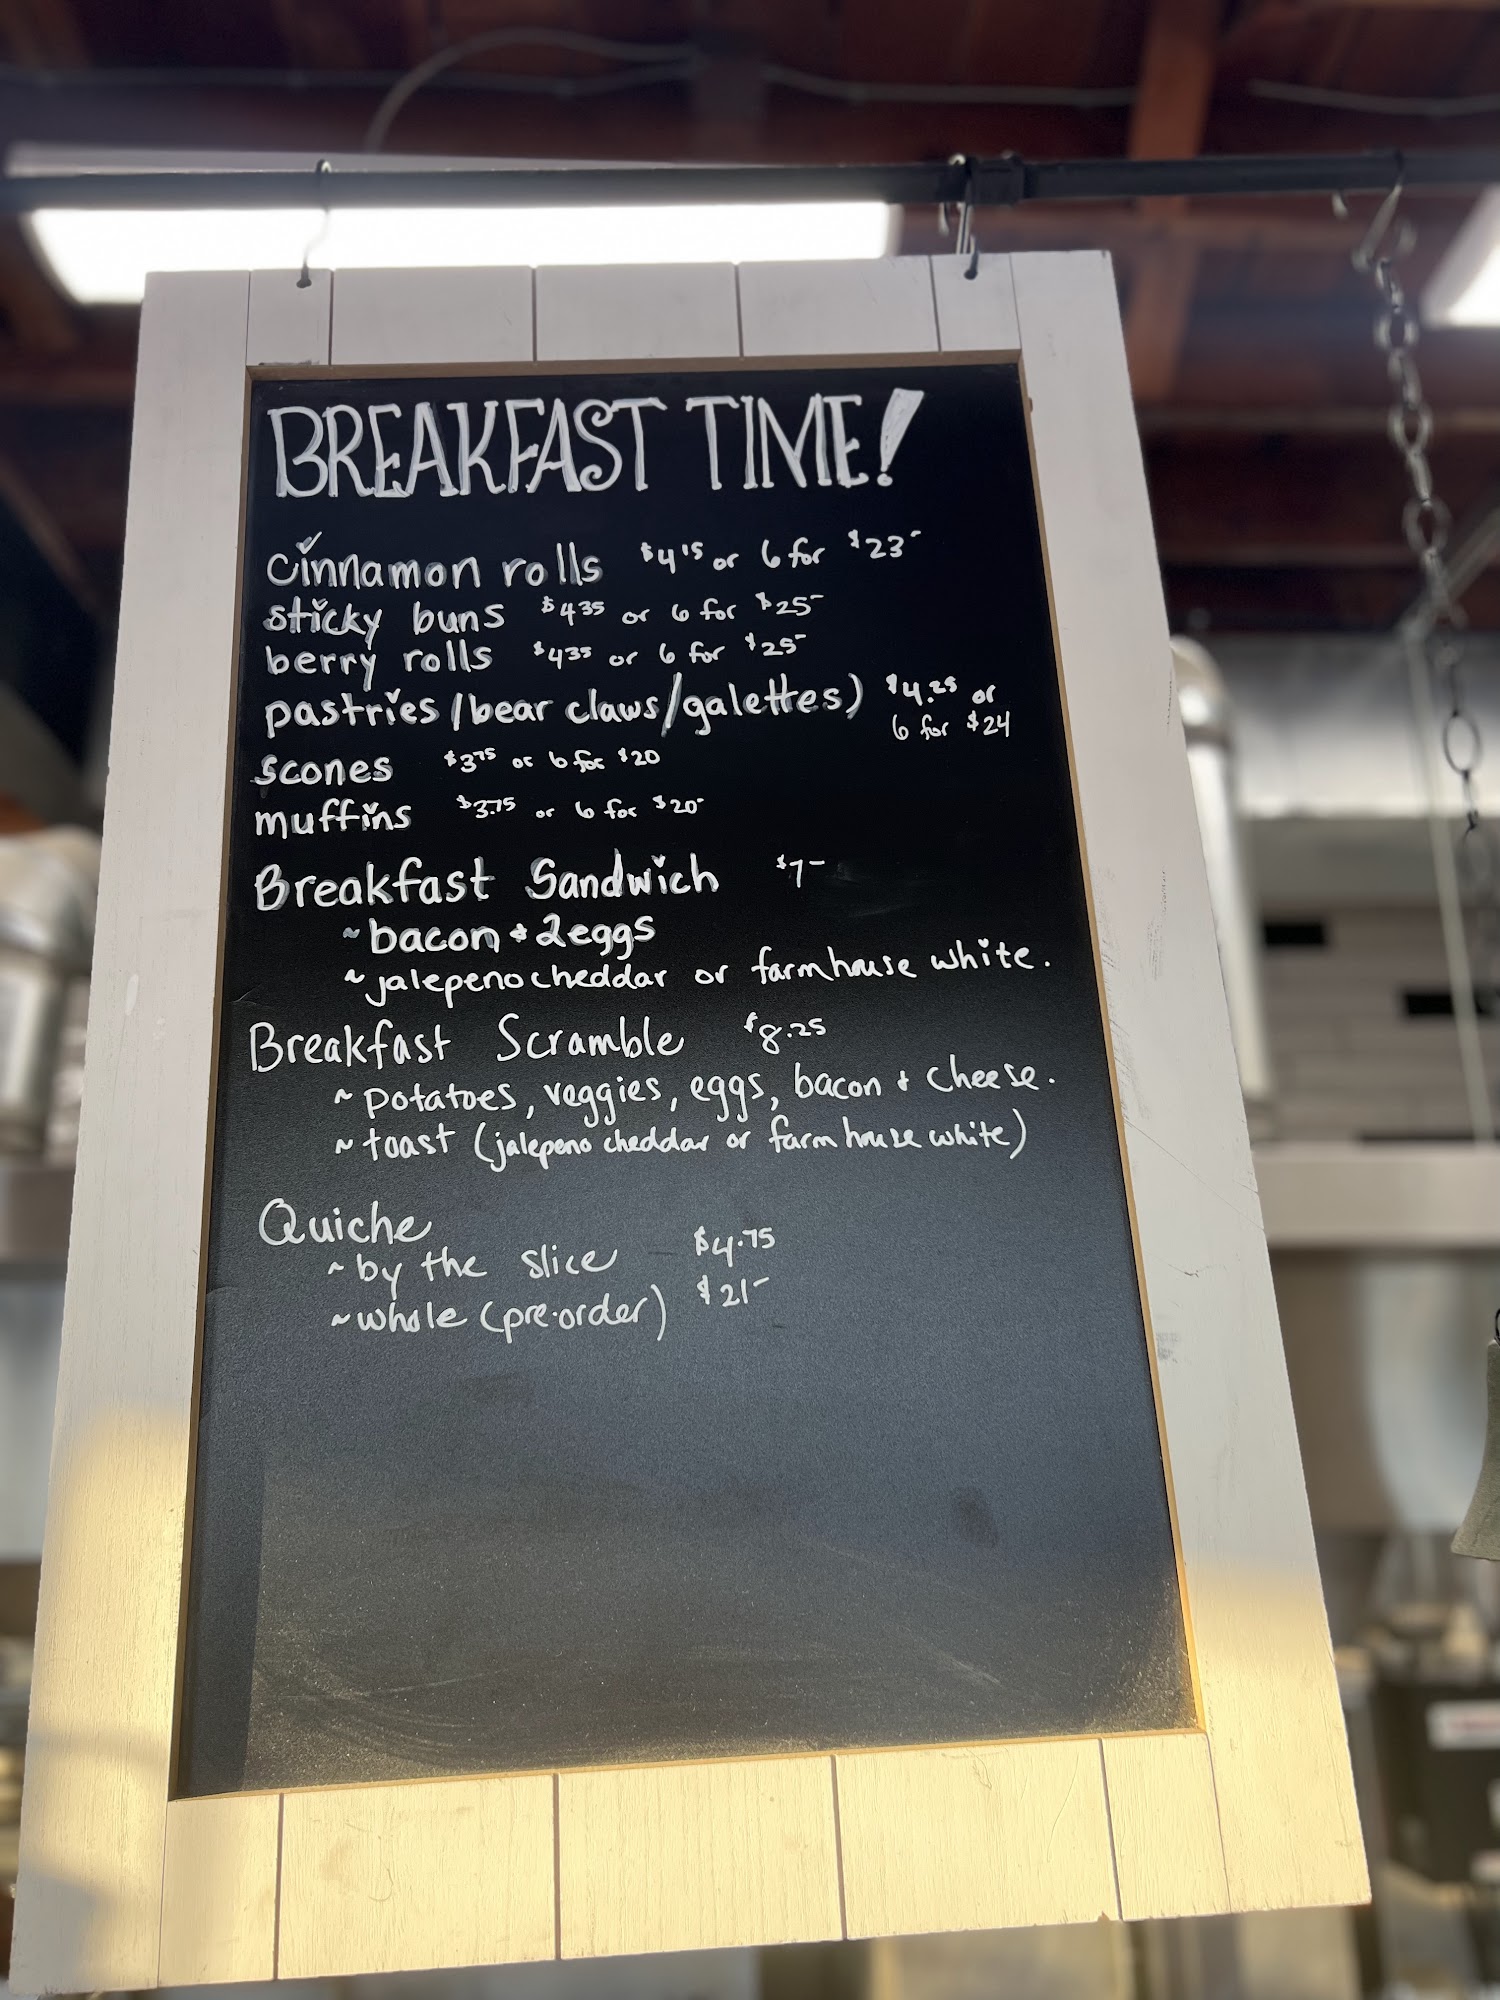 BREAKFAST TIME!
cinnamon rolls $4.15 or 6 for $23-
sticky buns $4.35 or 6 for $25-
berry rolls $4.35 or 6 for $25-
pastries/bear claws/galettes) $4.25 or
6 for $24
scones $3.75 or 6 for $20
muffins $3.75 or 6 for $20-
Breakfast Sandwich $7-
~ bacon + 2 eggs
~ jalepeno cheddar or farmhouse white.
Breakfast Scramble $8.25
~ potatoes, veggies, eggs, bacon + cheese.
~ toast (jalepeno cheddar or farmhouse white)
Quiche
~ by the slice $4.75
~ whole (pre-order) $21-